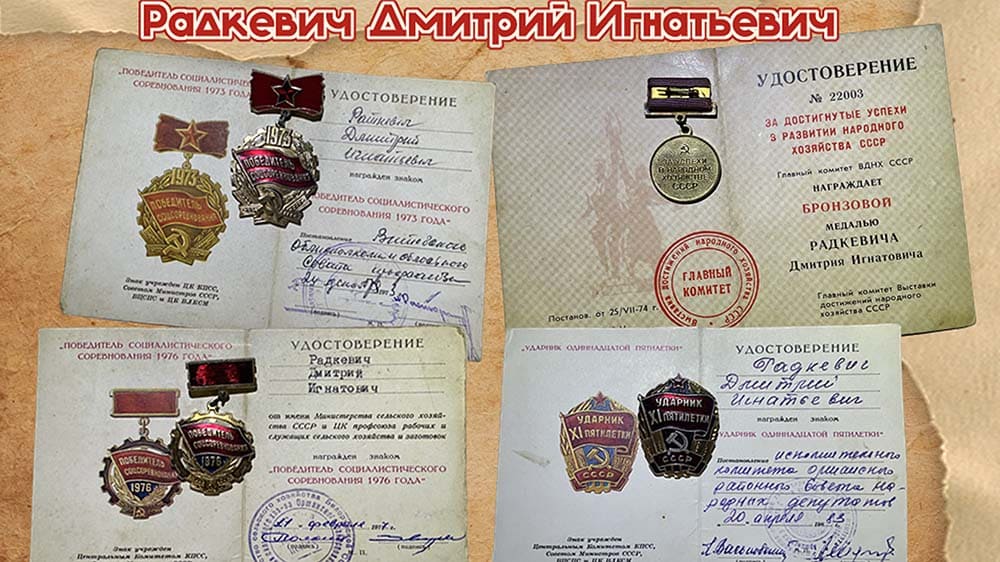 Радкевич Дмитрий Игнатьевич
"ПОБЕДИТЕЛЬ СОЦИАЛИСТИЧЕСКОГО
СОРЕВНОВАНИЯ 1973 ГОДА"
1973
ПОБЕДИТЕЛЬ
СОЦСОРЕВНОВАНИЯ
1973
ПОБЕДИТЕЛЬ
СОЦСОРЕВНОВАНИЯ
Знак учрежден ЦК КПСС,
Советом Министров СССР,
ВЦСПС и ЦК ВЛКСМ
УДОСТОВЕРЕНИЕ
Дмитрий
Игнатьевич
награжден знаком
"ПОБЕДИТЕЛЬ СОЦИАЛИСТИЧЕСКОГО
СОРЕВНОВАНИЯ 1973 ГОДА"
Постановление Витебского
Облисполкома и областного
Совета профсоюзов
24 декабря 1973
(подпись)
ЗА УСПЕХИ
В НАРОДНОМ
ХОЗЯЙСТВЕ
СССР
УДОСТОВЕРЕНИЕ
№ 22003
ЗА ДОСТИГНУТЫЕ УСПЕХИ
В РАЗВИТИИ НАРОДНОГО
ХОЗЯЙСТВА СССР
Главный комитет ВДНХ СССР
НАГРАЖДАЕТ
БРОНЗОВОЙ
МЕДАЛЬЮ
РАДКЕВИЧА
Дмитрия Игнатовича
Главный комитет Выставки
достижений народного
хозяйства СССР
Выставка достижений народного хозяйства СССР
ГЛАВНЫЙ
КОМИТЕТ
Постанов. от 25/VII-74 г.
"ПОБЕДИТЕЛЬ СОЦИАЛИСТИЧЕСКОГО
СОРЕВНОВАНИЯ 1976 ГОДА"
ПОБЕДИТЕЛЬ
СОЦСОРЕВНОВАНИЯ
1976
ПОБЕДИТЕЛЬ
СОЦСОРЕВНОВАНИЯ
1976
Знак учрежден
Центральным Комитетом КПСС,
Советом Министров СССР,
ВЦСПС и ЦК ВЛКСМ
УДОСТОВЕРЕНИЕ
Радкевич
Дмитрий
Игнатович
от имени Министерства сельского хозяй-
ства СССР и ЦК профсоюза рабочих и
служащих сельского хозяйства и заготовок
награжден знаком
"ПОБЕДИТЕЛЬ СОЦИАЛИСТИЧЕСКОГО
СОРЕВНОВАНИЯ 1976 ГОДА"
21 февраля 1977 г.
(подпись)
(подпись)
"УДАРНИК ОДИННАДЦАТОЙ ПЯТИЛЕТКИ"
УДАРНИК
XI ПЯТИЛЕТКИ
СССР
УДАРНИК
XI ПЯТИЛЕТКИ
СССР
Знак учрежден
Центральным Комитетом КПСС,
Советом Министров СССР,
ВЦСПС и ЦК ВЛКСМ
УДОСТОВЕРЕНИЕ
Радкевич
Дмитрий
Игнатьевич
награжден знаком
"УДАРНИК ОДИННАДЦАТОЙ ПЯТИЛЕТКИ"
Постановление исполнительного
комитета Оршанского
районного Совета на-
родных депутатов
20 апреля 1983